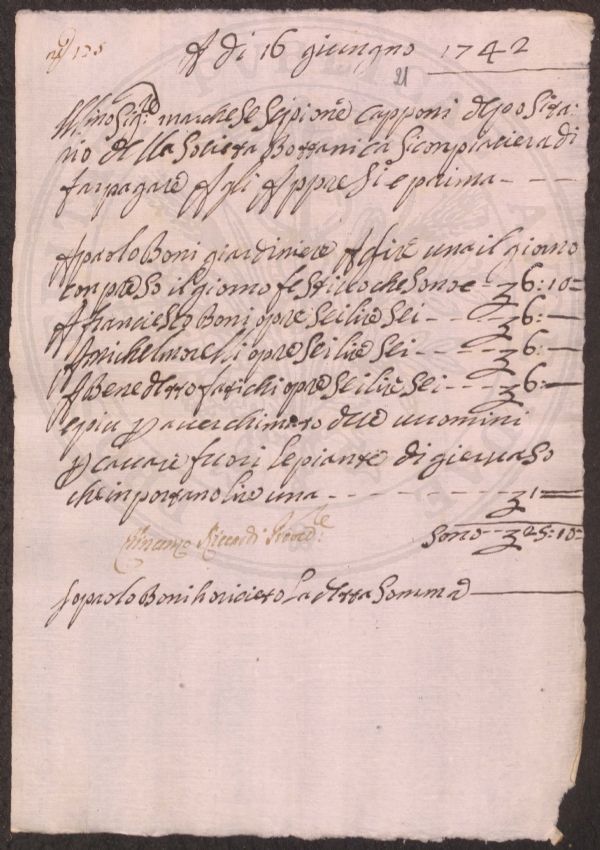 A di 16 giungno 1742
21
Ill:mo Sig:re marchese Scipione Capponi deposita:
rio della Societa Bottanica si conpiaciera di
far pagare A gli Appresi e prima - - -
A paolo Boni giardiniere A lire una il giorno
conpreso il giorno festivo che sono - 6:10
A franciesco Boni opre sei lire sei - - - 6: -
A michel morelli opre sei lire sei - - - 6: -
A Benedetto farichi opre sei lire sei - - - 6: -
e piu p avere chimato due uuomini
p cavare fuori le piante di gien vaso
che inportano lire una - - - - - - 1
Vincenzo Riccardi Proved:re
Sono - 25:10
Io paolo Boni ho riceuto La detta Somma